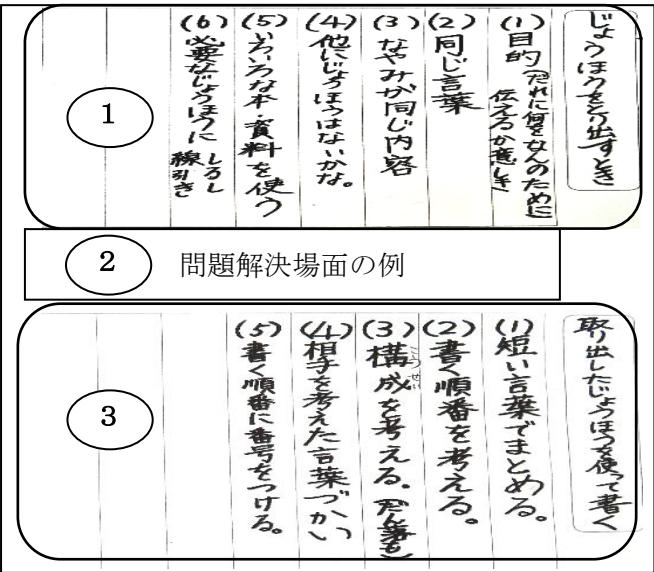 じょうほうをとり出すとき
(1)目的(だれに何をなんのために
伝えるか意しき)
(2)同じ言葉
(3)なやみが同じ内容
(4)他にじょうほうはないかな。
(5)いろいろな本・資料を使う
(6)必要なじょうほうに しるし
線引き
1
2 問題解決場面の例
取り出したじょうほうを使って書く
(1)短い言葉でまとめる。
(2)書く順番を考える。
(3)構成を考える。(だん落も)
こうせい
(4)相手を考えた言葉づかい
(5)書く順番に番号をつける。
3